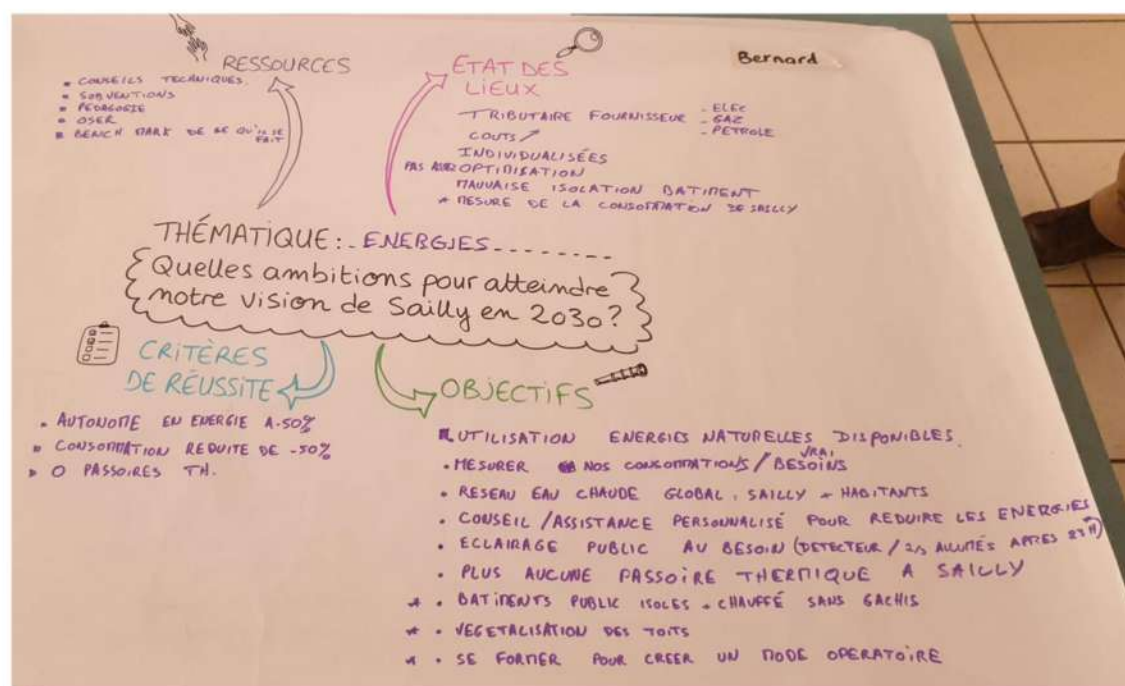 RESSOURCES
• CONSEILS TECHNIQUES.
• SUBVENTIONS
• PEDAGOGIE
• OSER
• BENCH MARK DE CE QU'IL SE FAIT
ETAT DES
LIEUX
TRIBUTAIRE FOURNISSEUR
- ELEC
- GAZ
- PETROLE
COUTS ↗
INDIVIDUALISÉES
PAS ASSEZ OPTIMISATION
MAUVAISE ISOLATION BATIMENT
* MESURE DE LA CONSOMMATION DE SAILLY
Bernard
THÉMATIQUE : ENERGIES
Quelles ambitions pour atteindre
notre vision de Sailly en 2030?
CRITÈRES
DE RÉUSSITE
• AUTONOME EN ENERGIE A 50%
• CONSOMMATION REDUITE DE -50%
• 0 PASSOIRES TH.
OBJECTIFS
• UTILISATION ENERGIES NATURELLES DISPONIBLES.
• MESURER NOS CONSOMMATIONS / VRAI BESOINS
• RESEAU EAU CHAUDE GLOBAL : SAILLY + HABITANTS
• CONSEIL / ASSISTANCE PERSONNALISÉ POUR REDUIRE LES ENERGIES
• ECLAIRAGE PUBLIC AU BESOIN (DETECTEUR / 2/3 ALLUMÉS APRES 23H)
• PLUS AUCUNE PASSOIRE THERMIQUE A SAILLY
* • BATIMENTS PUBLIC ISOLES + CHAUFFÉ SANS GACHIS
* • VEGETALISATION DES TOITS
* • SE FORMER POUR CREER UN MODE OPERATOIRE